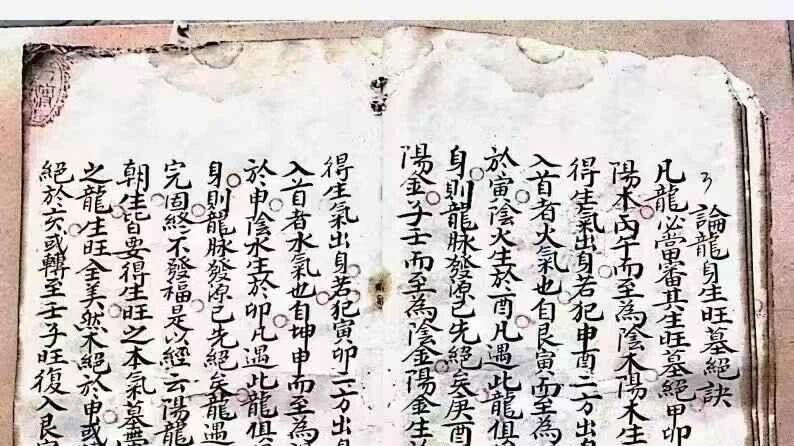 論龍身生旺墓絕訣
凡龍必當審其生旺墓絕甲卯
陽木丙午而至為陰木陽木生
得生氣出身若犯申酉二方出
入首者火氣也自艮寅而至為
於寅陰火生於酉凡遇此龍俱
身則龍脉發源已先絕矣庚酉
陽金子壬而至為陰金陽金生
得生氣出身若犯寅卯二方出身
入首者水氣也自坤申而至為
於申陰水生於卯凡遇此龍俱
身則龍脉發源已先絕矣龍遇
完固終不發福是以經云陽龍
朝生皆要得生旺之本氣墓
之龍生旺全美然木絕於申或
絕於亥或轉至壬子旺復入艮